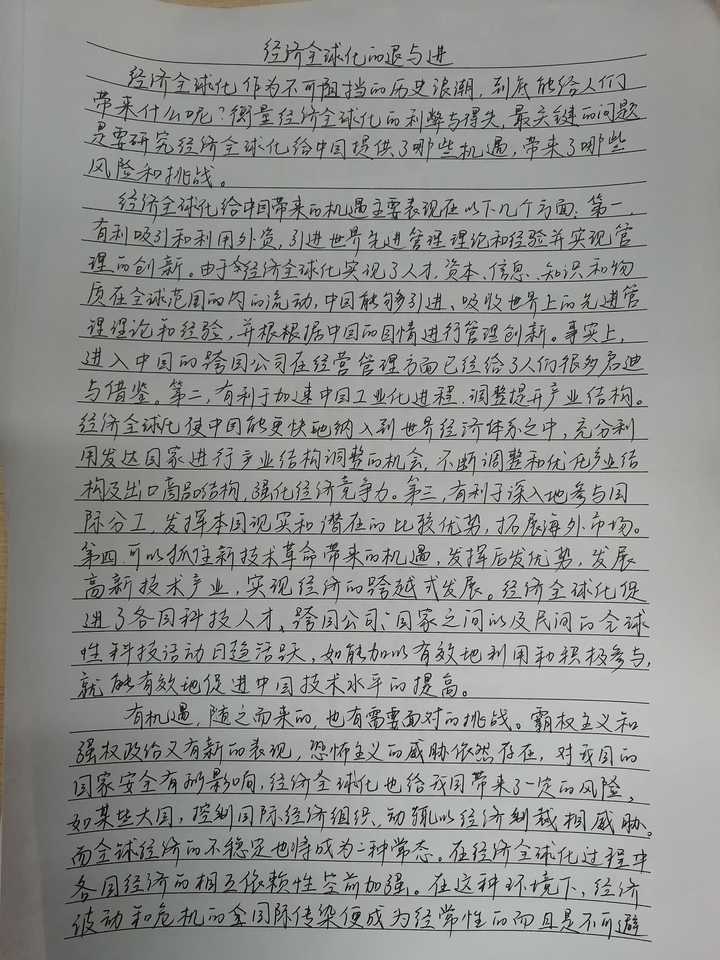 经济全球化的退与进
经济全球化作为不可阻挡的历史浪潮,到底能给人们
带来什么呢?衡量经济全球化的利弊与得失,最关键的问题
是要研究经济全球化给中国提供了哪些机遇,带来了哪些
风险和挑战。
经济全球化给中国带来的机遇主要表现在以下几个方面:第一,
有利吸引和利用外资,引进世界先进管理理论和经验并实现管
理的创新。由于经济全球化实现了人才、资本、信息、知识和物
质在全球范围的内的流动,中国能够引进、吸收世界上的先进管
理理论和经验,并根根据中国的国情进行管理创新。事实上,
进入中国的跨国公司在经营管理方面已经给了人们很多启迪
与借鉴。第二,有利于加速中国工业化进程,调整提升产业结构。
经济全球化使中国能更快地纳入到世界经济体系之中,充分利
用发达国家进行产业结构调整的机会,不断调整和优化产业结
构及出口商品结构,强化经济竞争力。第三,有利于深入地参与国
际分工,发挥本国现实和潜在的比较优势,拓展海外市场。
第四,可以抓住新技术革命带来的机遇,发挥后发优势,发展
高新技术产业,实现经济的跨越式发展。经济全球化促
进了各国科技人才、跨国公司、国家之间以及民间的全球
性科技活动日趋活跃,如能加以有效地利用和积极参与,
就能有效地促进中国技术水平的提高。
有机遇,随之而来的,也有需要面对的挑战。霸权主义和
强权政治又有新的表现,恐怖主义的威胁依然存在,对我国的
国家安全有所影响,经济全球化也给我国带来了一定的风险,
如某些大国,控制国际经济组织,动辄以经济制裁相威胁。
而全球经济的不稳定也将成为一种常态。在经济全球化过程中
各国经济的相互依赖性空前加强。在这种环境下,经济
波动和危机的全国际传染便成为经常性的而且是不可避